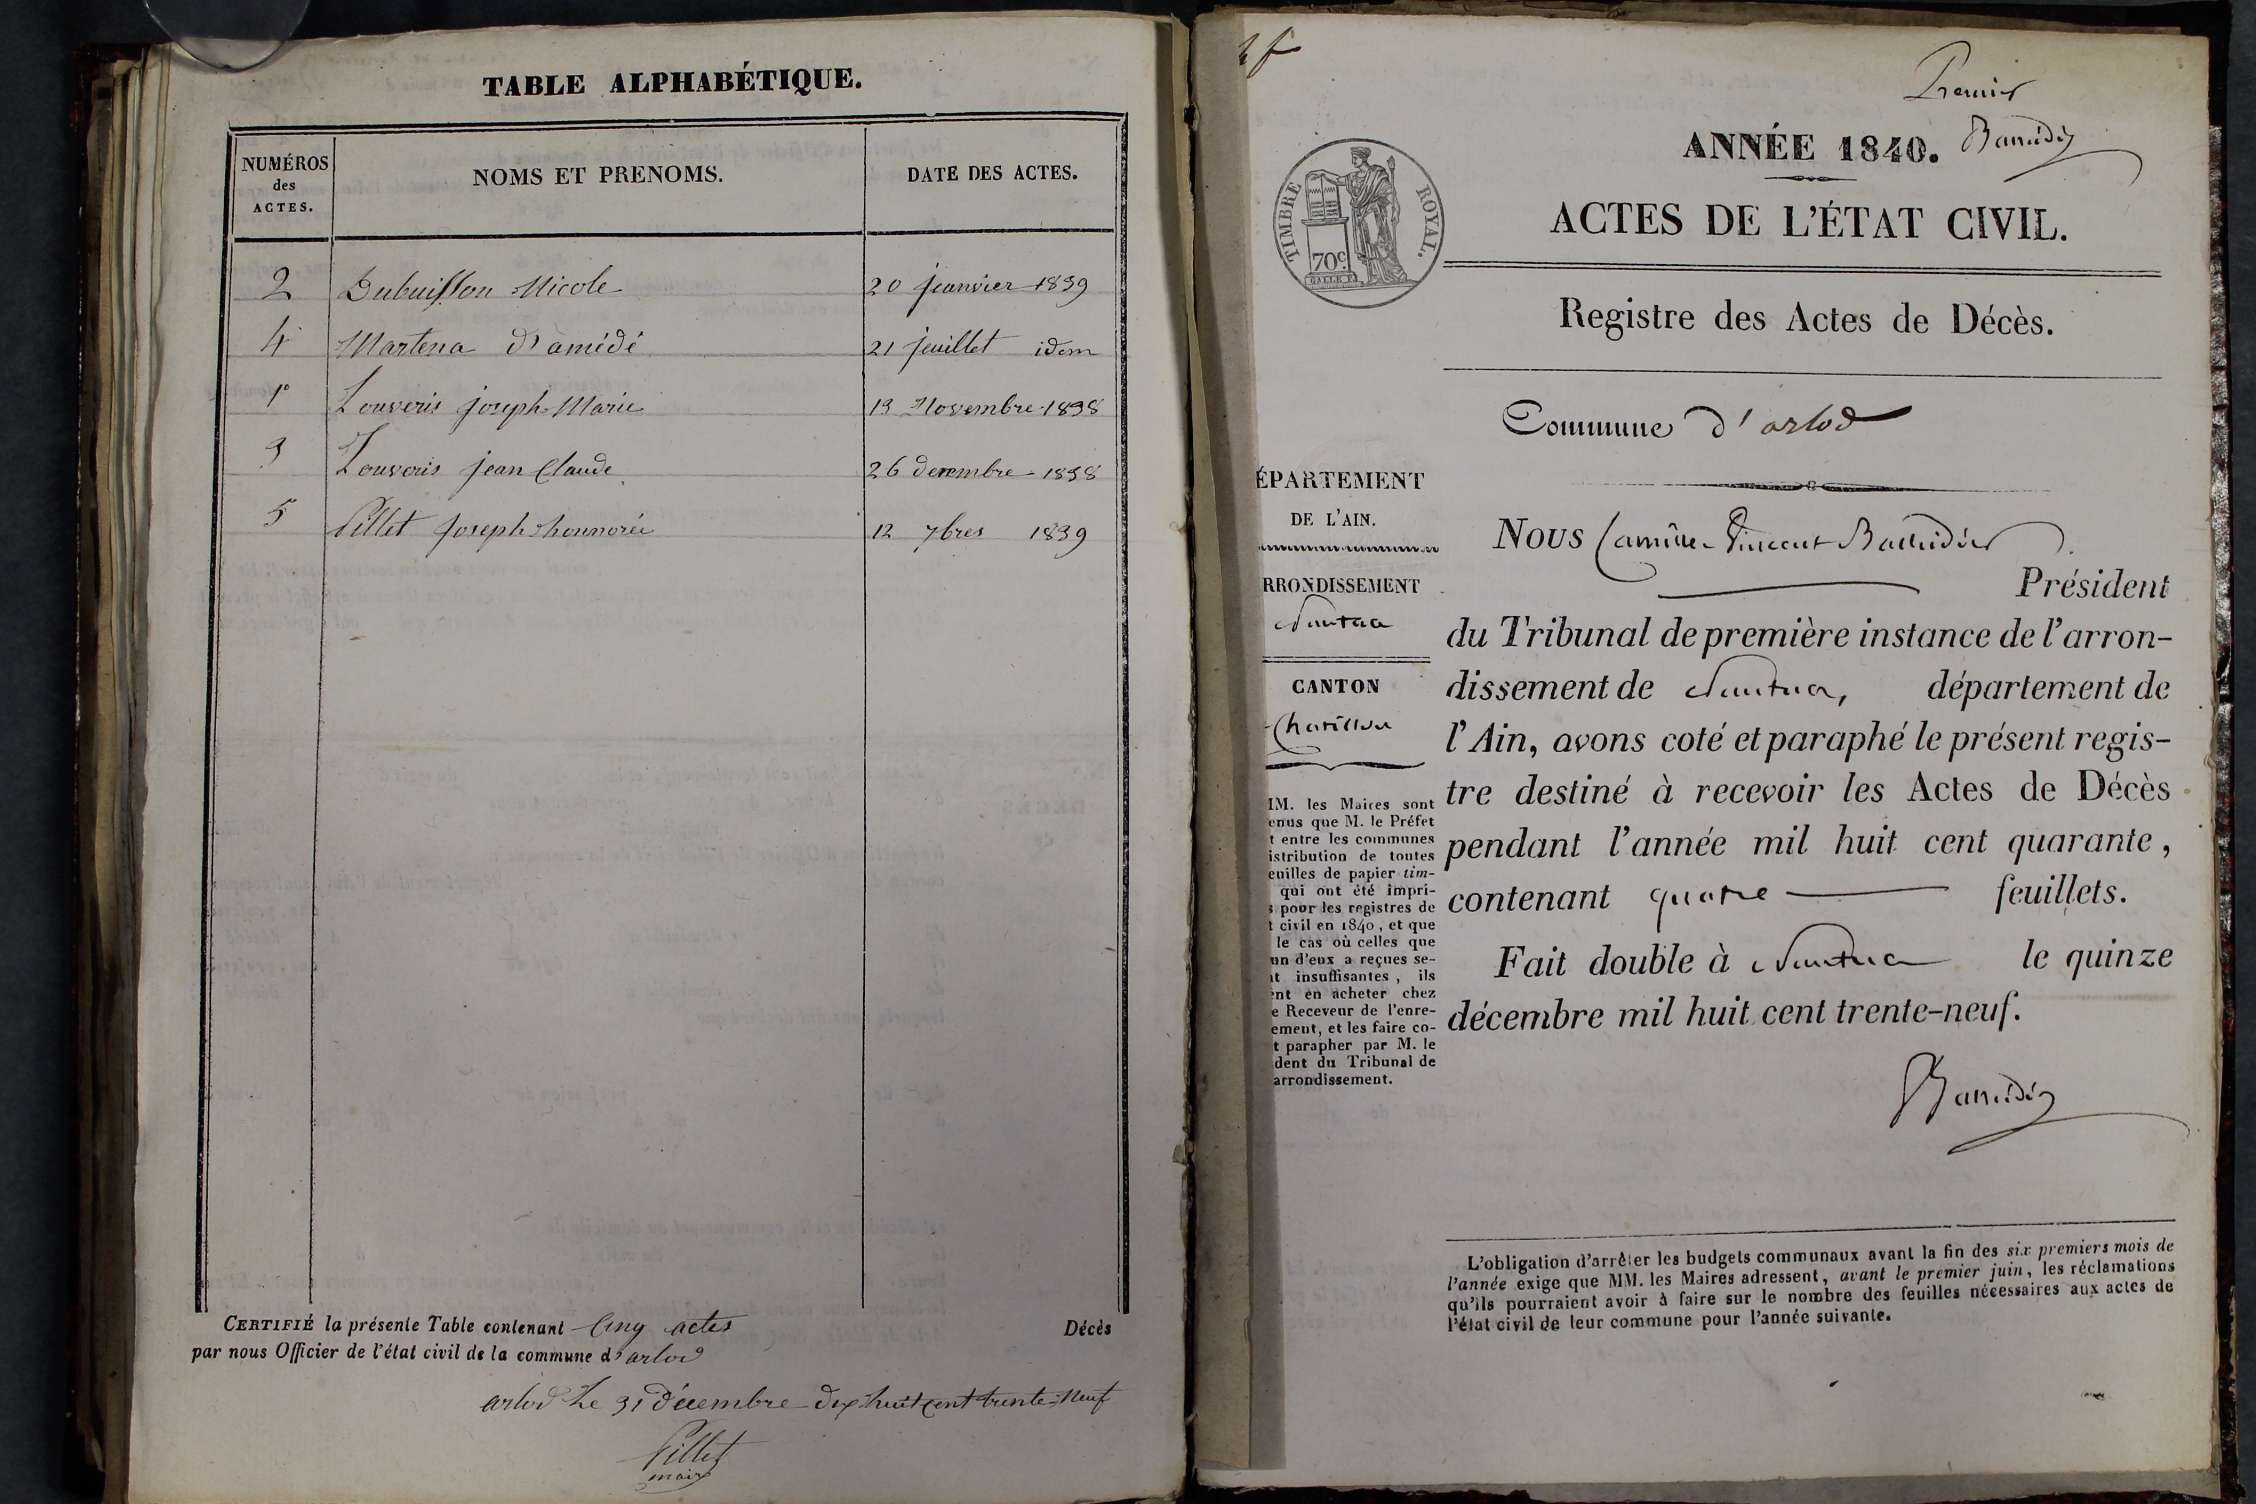 TABLE ALPHABÉTIQUE.
NUMÉROS des ACTES. NOMS ET PRENOMS. DATE DES ACTES.
2 Dubuisson Nicole 20 janvier 1839
4 Martena d'amédé 21 juillet idem
1º Louveris joseph Marie 13 Novembre 1838
3 Louveris jean Claude 26 decembre 1838
5 Pillet joseph honnorée 12 7bres 1839
CERTIFIÉ la présente Table contenant Cinq actes Décès
par nous Officier de l'état civil de la commune d'arlod
arlod Le 31 Décembre dix huit cent trente-Neuf
Pillet
maire
Premier
ANNÉE 1840.
TIMBRE ROYAL.
70c.
ACTES DE L'ÉTAT CIVIL.
Registre des Actes de Décès.
Commune d'arlod
ÉPARTEMENT
DE L'AIN.
RRONDISSEMENT
Nantua
CANTON
Chatillon
IM. les Maires sont
enus que M. le Préfet
t entre les communes
istribution de toutes
euilles de papier tim-
qui ont été impri-
s pour les registres de
t civil en 1840, et que
le cas où celles que
un d'eux a reçues se-
nt insuffisantes, ils
ent en acheter chez
e Receveur de l'enre-
ement, et les faire co-
t parapher par M. le
dent du Tribunal de
arrondissement.
Nous Camille Vincent
Président
du Tribunal de première instance de l'arron-
dissement de Nantua, département de
l'Ain, avons coté et paraphé le présent regis-
tre destiné à recevoir les Actes de Décès
pendant l'année mil huit cent quarante,
contenant quatre feuillets.
Fait double à Nantua le quinze
décembre mil huit cent trente-neuf.
L'obligation d'arrêter les budgets communaux avant la fin des six premiers mois de
l'année exige que MM. les Maires adressent, avant le premier juin, les réclamations
qu'ils pourraient avoir à faire sur le nombre des feuilles nécessaires aux actes de
l'état civil de leur commune pour l'année suivante.